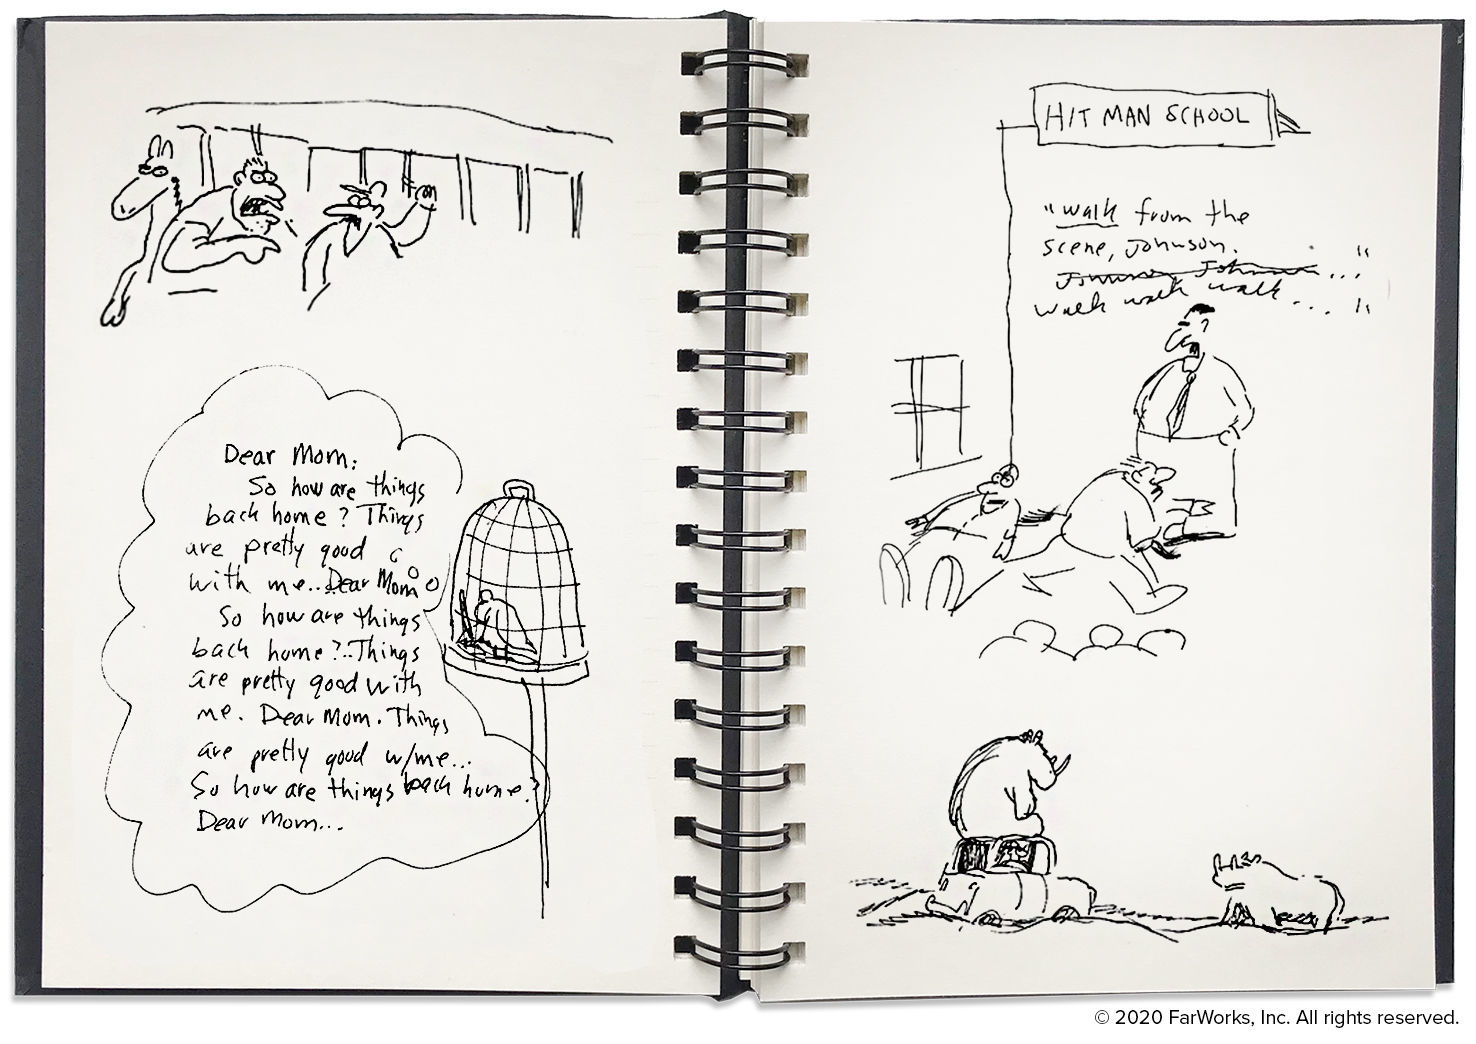 Dear Mom:
So how are things
back home? Things
are pretty good
with me..Dear Mom
So how are things
back home?..Things
are pretty good with
me. Dear Mom. Things
are pretty good w/me...
So how are things back home?
Dear Mom...
HIT MAN SCHOOL
"walk from the
scene, Johnson.
Johnson..."
walk walk walk...."
© 2020 FarWorks, Inc. All rights reserved.